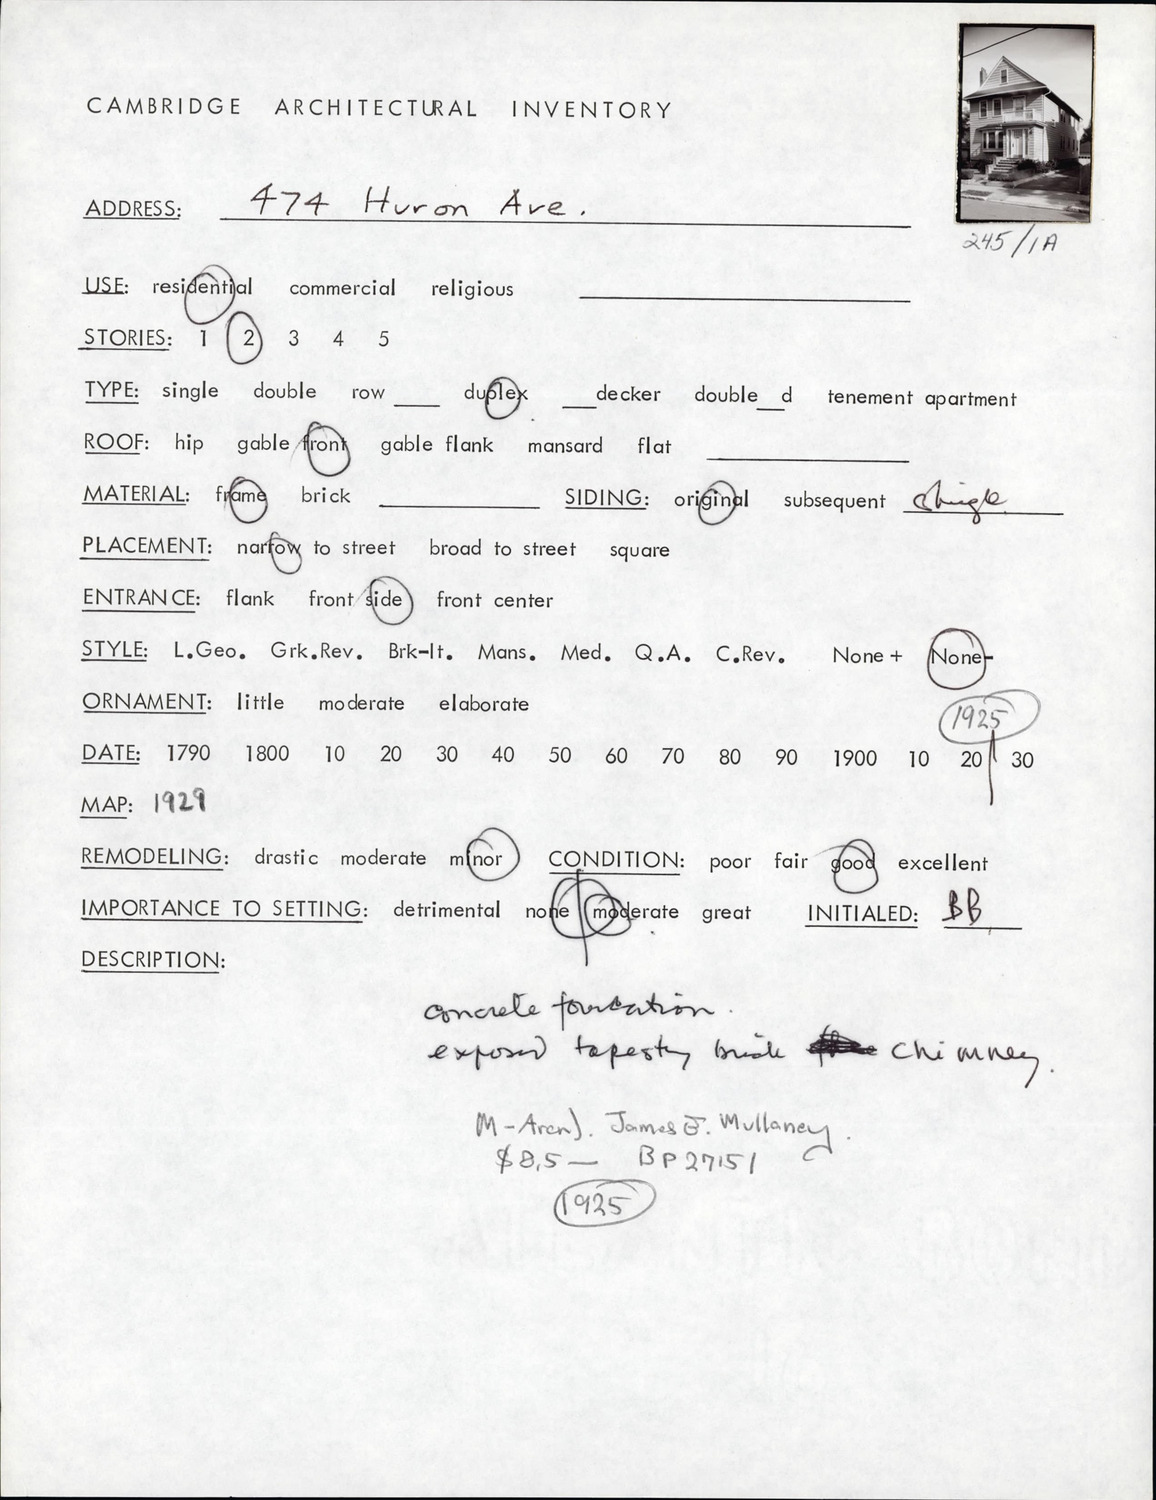 CAMBRIDGE ARCHITECTURAL INVENTORY
245/1A
ADDRESS: 474 Huron Ave.
USE: residential commercial religious
STORIES: 1 2 3 4 5
TYPE: single double row ___ duplex ___decker double__d tenement apartment
ROOF: hip gable front gable flank mansard flat
MATERIAL: frame brick SIDING: original subsequent shingle
PLACEMENT: narrow to street broad to street square
ENTRANCE: flank front side front center
STYLE: L.Geo. Grk.Rev. Brk-It. Mans. Med. Q.A. C.Rev. None+ None-
ORNAMENT: little moderate elaborate
1925
DATE: 1790 1800 10 20 30 40 50 60 70 80 90 1900 10 20 30
MAP: 1929
REMODELING: drastic moderate minor CONDITION: poor fair good excellent
IMPORTANCE TO SETTING: detrimental none moderate great INITIALED: BB
DESCRIPTION:
concrete foundation.
exposed tapestry brick chimney.
James J. Mullaney.
$8,5— BP27151
1925